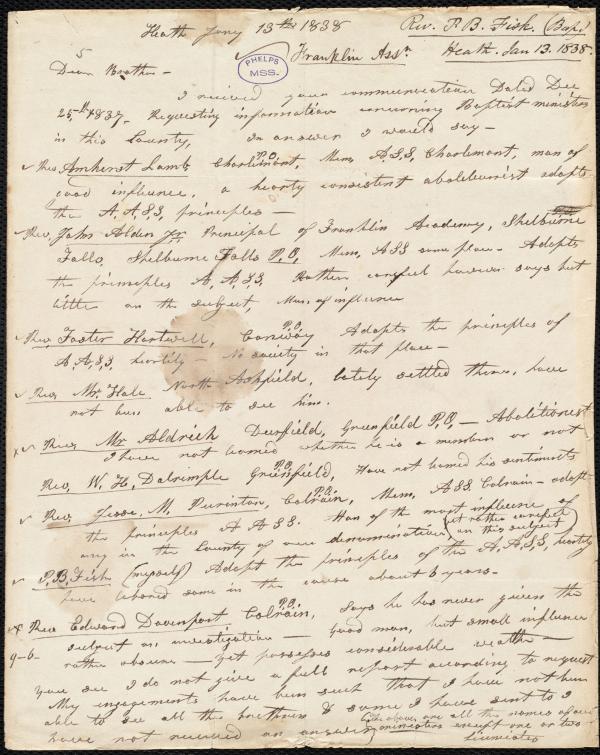 Heath Jany 13th 1838
Rev. P. B. Fisk. (Bap.)
Franklin Assn.
Heath. Jan 13. 1838.
PHELPS
MSS.
5
Dear Brother -
I received your communication Dated Dec
25th 1837. Requesting information concerning Baptist ministers
in this County, In answer I would say -
Rev. Amherst Lamb Charlemont, P.O. Mem. A.S.S. Charlemont, man of
good influence, a hearty consistent abolitionist adopts
the A.A.S.S. principles -
Rev. John Alden Jr. Principal of Franklin Academy, Shelburne
Falls, Shelburne Falls P.O. Mem. ASS same place - Adopts
the principles A.A.S.S. Rather careful however says but
little on the subject, Man of influence
Rev. Foster Hartwell, Conway P.O. Adopts the principles of
A.A.S.S. heartily - No society in that place -
Rev. Mr. Hale North Ashfield, lately settled there, have
not been able to see him.
x Rev. Mr Aldrich Deerfield, Greenfield P.O. - Abolitionist
I have not learned whether he is a member or not
Rev. W. H. Dalrimple Greenfield, P.O. Have not learned his sentiments
Rev. Jesse M. Purinton, Colrain, P.O. Mem. ASS. Colrain - adopts
the principles A A SS. Man of the most influence of
any in the County of our denomination (yet rather careful on this subject)
P.B. Fisk (myself) Adopt the principles of the A.A.S.S. heartily
have labored some in the cause about 3 years -
x Rev Edward Davenport Colrain, P.O. says he has never given the
subject an investigation - Good man, but small influence
9-6- rather obscure - yet possesses considerable wealth -
You see I do not give a full report according to request
My engagements have been such that I have not been
able to see all the brethren & some I have sent to I
have not received an answer (The above are all the names of our
ministers except one or two
licensiates